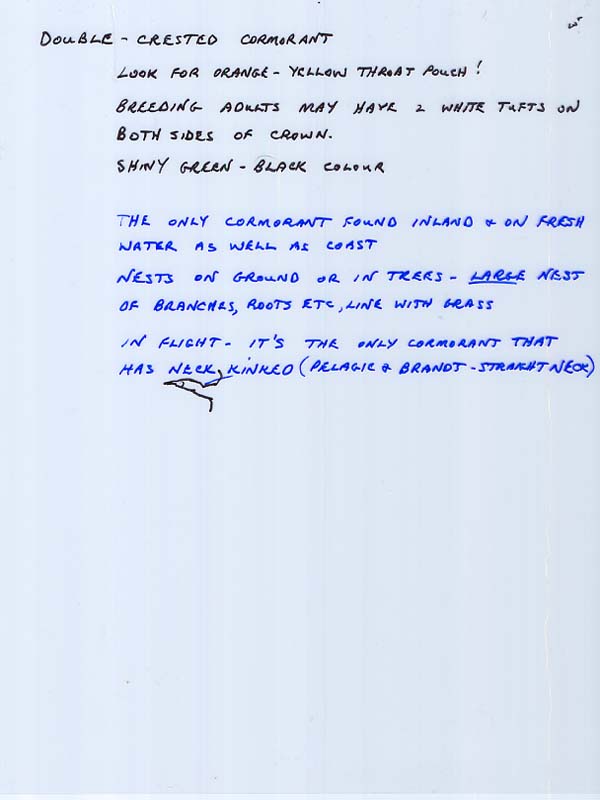 DOUBLE - CRESTED CORMORANT
LOOK FOR ORANGE - YELLOW THROAT POUCH!
BREEDING ADULTS MAY HAVE 2 WHITE TUFTS ON
BOTH SIDES OF CROWN.
SHINY GREEN - BLACK COLOUR
THE ONLY CORMORANT FOUND INLAND & ON FRESH
WATER AS WELL AS COAST
NESTS ON GROUND OR IN TREES - LARGE NEST
OF BRANCHES, ROOTS ETC, LINE WITH GRASS
IN FLIGHT - IT'S THE ONLY CORMORANT THAT
HAS NECK KINKED (PELAGIC & BRANDT - STRAIGHT NECK)